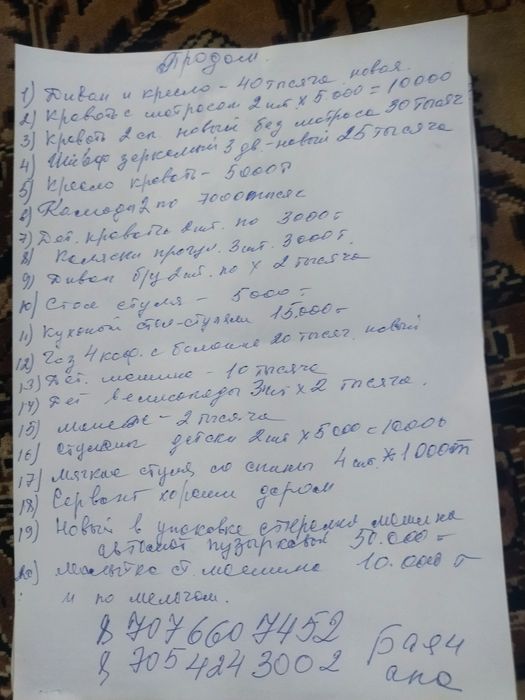 Продом.
1) Диван и кресло - 40 тысяча новая.
2) Кровать с матросом 2 шт х 5.000 = 10000
3) Кровать 2 сп новый без матроса 30 тысяч
4) Шкаф зеркалный 3 дв - новый 25 тысяча
5) Кресло кровать - 5000т
6) Камода 2 по 7000 тысяч
7) Дет. кровать 2 шт. по 3000т
8) Коляски прогул. 3 шт. 3000т.
9) Диван б/у 2 шт. по х 2 тысяча
10) Стол стуля - 5000т
11) Кухоный стол-стулями 15000т
12) Газ 4 конф. с балоние 20 тысяч. новый
13) Дет. машина - 10 тысяча
14) Дет велисопеды 3 шт х 2 тысяча.
15) - 2 тысяча
16) детски 2 шт х 5000 = 10000
17) Мягкие стуля со спины 4 шт. х 1000т
18) Сервант хороши даром
19) Новый в упаковке стиралка машина
автомат пузырковый 50.000т
20) Малытка с. машина 10.000 т
и по мелочам.
8 707 660 7452
8 705 424 3002
баян
ано